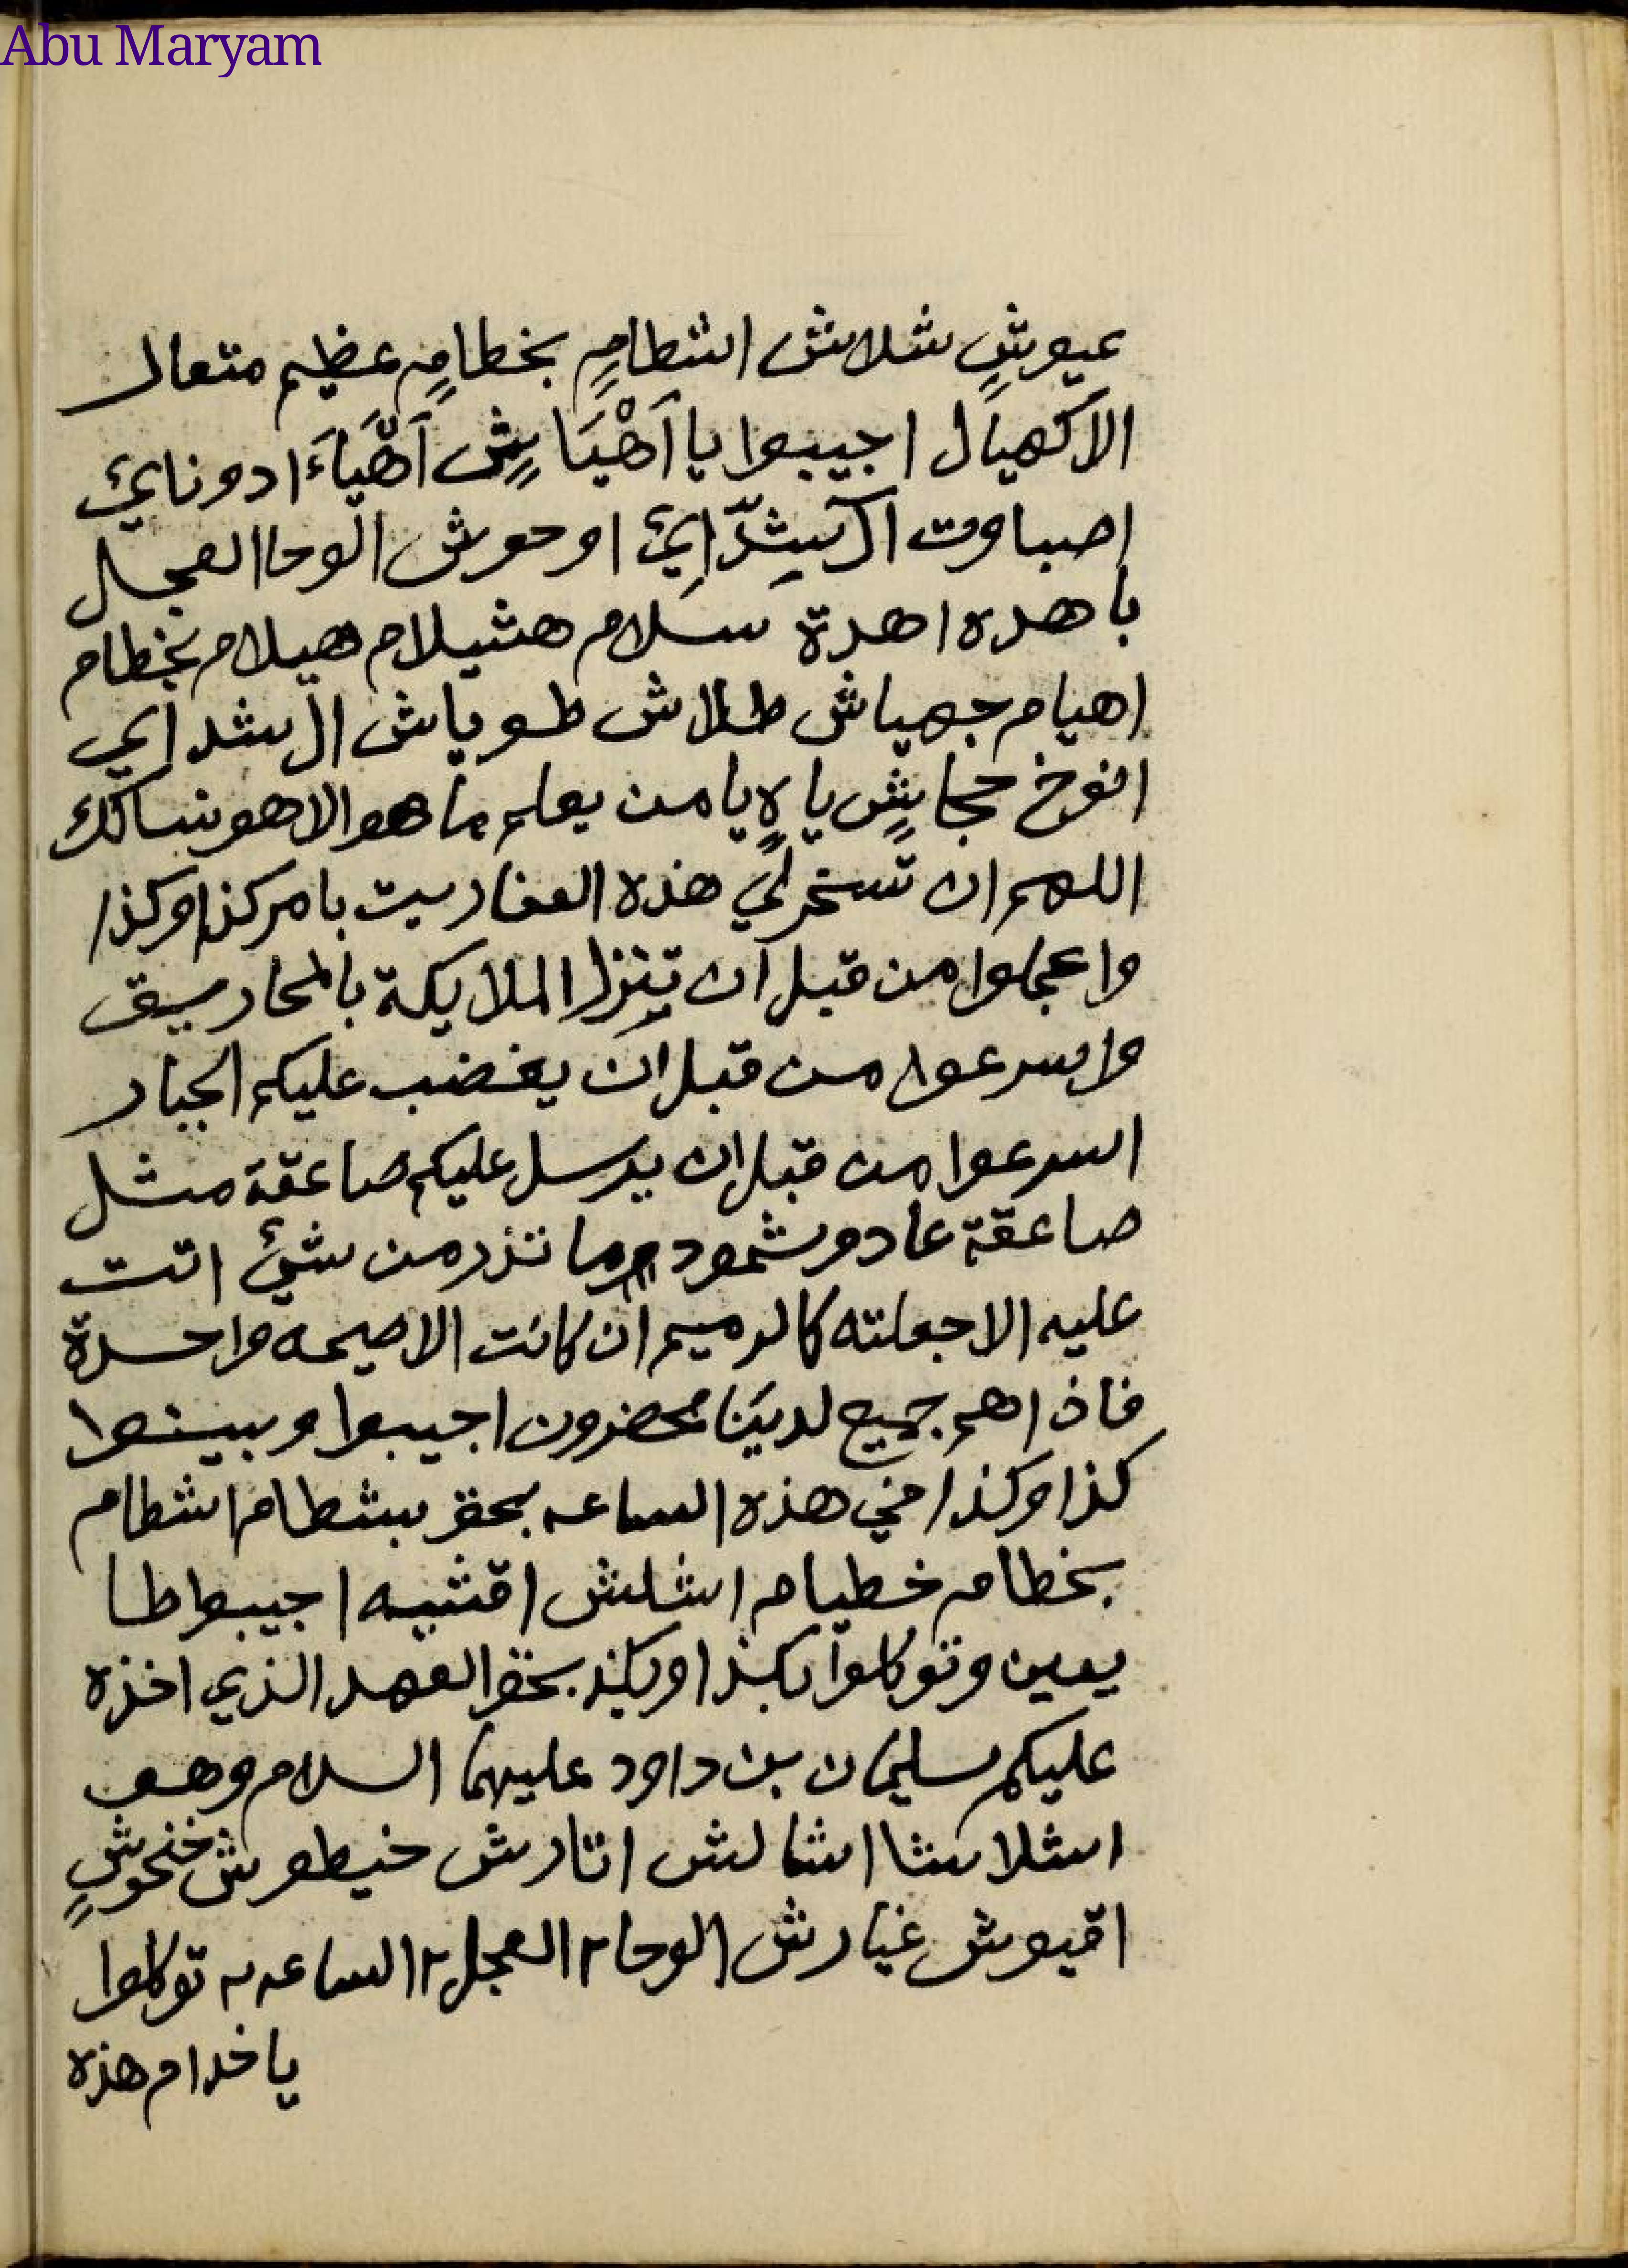 Abu Maryam
عيوشٍ شلاش اشطامٍ بخطامٍ عظيم متعال
الاكهيال اجيبوا يا اَهْيَا شٍ اَهَّيَاءَ ادوناىئ
اصباوت اَل شِدّاىئ اوحوش الوحا العجل
باهده اهدة سلام هشيلام هيلام بخطام
اهيام جهياش طلاش طوياش ال شداي
انوخ حجاشٍ ياهٍ يا من يعلم ما هو الا هو نسالك
اللهم ان تسخر لي هذه العفاريت بامر كذا وكذا
واعجلوا من قبل ان تتنزل الملايكة بالمحاريق
واسرعوا من قبل ان يغضب عليكم الجبار
اسرعوا من قبل ان يرسل عليكم صاعقة مثل
صاعقة عاد وثمود وما تذر من شئ اتت
عليه الا جعلته كالرميم ان كانت الا صيحه واحدة
فاذا هم جميع لدينا محضرون اجيبوا وبينوا
كذا وكذا في هذه الساعه بحق بشطام اشطام
بخطام خطيام اشلش اقشيه اجيبوا طا
يعين وتوكلوا بكذا وبكذ بحق العهد الذي اخذه
عليكم سليمان بن داود عليهما السلام وهو
اشلاشا اشالش اتارش خيطوش خنحوشٍ
اقيوش غيارش الوحا ٢ العجل ٢ الساعه ٢ توكلوا
يا خدام هذه